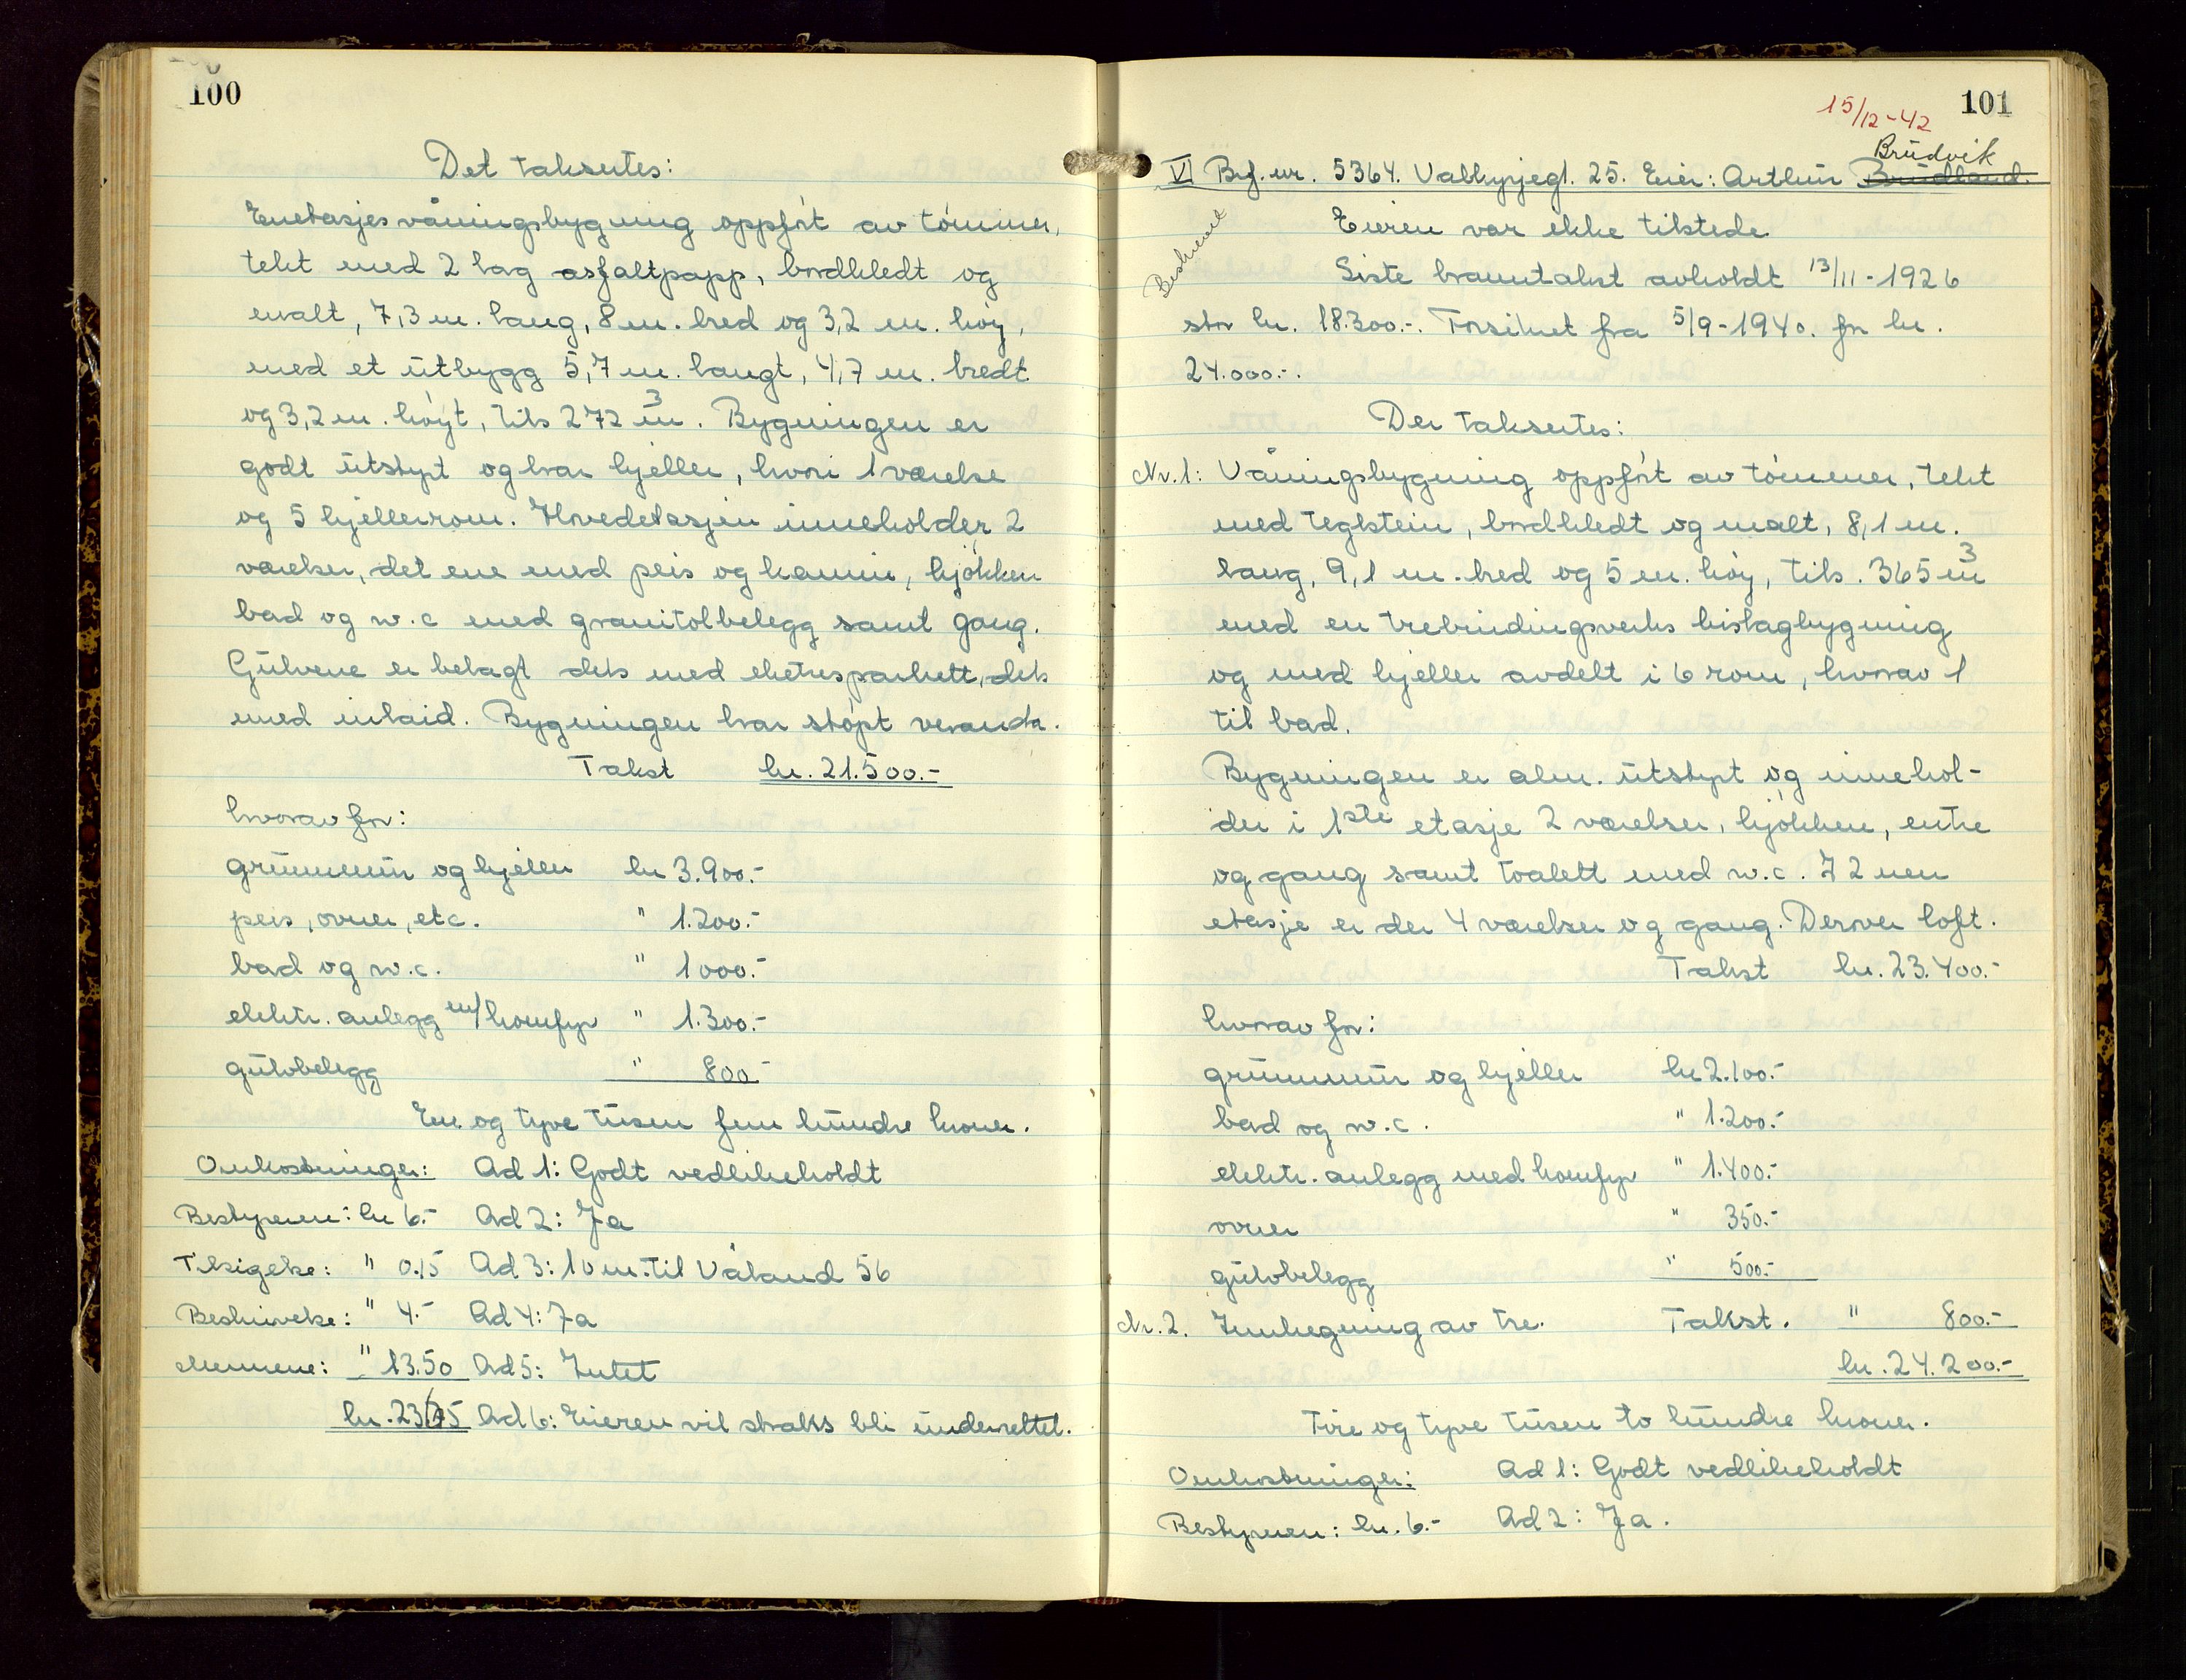 100
Det taksertes:
Enetasjes våningsbygning oppført av tømmer,
tekt med 2 lag asfaltpapp, bordkledt og
malt, 7,3 m. lang, 8 m. bred og 3,2 m. høy,
med et utbygg 5,7 m. langt, 4,7 m. bredt
og 3,2 m. høyt, tils 272 m³. Bygningen er
godt utstyrt og har kjeller, hvori 1 værelse
og 5 kjellerrom. Hovedetasjen inneholder 2
værelser, det ene med peis og kamin, kjøkken
bad og w.c med granitolbelegg samt gang.
Gulvene er belagt dels med eketresparkett, dels
med inlaid. Bygningen har støpt veranda.
Takst kr. 21.500.-
hvorav for:
grunnmur og kjeller kr 3.900.-
peis, ovner, etc. " 1.200.-
bad og w.c. " 1000.-
elektr. anlegg m/komfyr " 1.300.-
gulvbelegg " 800.-
En og tyve tusen fem hundre kroner.
Omkostninger: Ad 1: Godt vedlikeholdt
Bestyreren: kr 6.- Ad 2: Ja
Tilsigelse: " 0.15 Ad 3: 10 m. til Våland 56
Beskrivelse: " 4.- Ad 4: Ja
Mennene: " 13.50 Ad 5: Intet
kr. 23.65 Ad 6: Eieren vil straks bli underrettet.
101
15/12-42
Brudvik
VI Brf. nr. 5364. Valkyrjegt. 25. Eier: Arthur Brudland.
Beskrevet
Eieren var ikke tilstede
Siste branntakst avholdt 13/11-1926
stor kr. 18.300.-. Forsikret fra 5/9-1940. for kr.
24.000.-.
Der taksertes:
Nr. 1: Våningsbygning oppført av tømmer, tekt
med teglstein, bordkledt og malt, 8,1 m.
lang, 9,1 m. bred og 5 m. høy, tils. 365 m³
med en trebindingsverks bislagbygning
og med kjeller avdelt i 6 rom, hvorav 1
til bad.
Bygningen er alm. utstyrt og innehol-
der i 1ste etasje 2 værelser, kjøkken, entre
og gang samt toalett med w.c. I 2 nen
etasje er der 4 værelser og gang. Derover loft.
Takst kr. 23.400.-
hvorav for:
grunnmur og kjeller kr 2.100.-
bad og w.c. " 1.200.-
elektr. anlegg med komfyr " 1.400.-
ovner " 350.-
gulvbelegg " 500.-
Nr. 2. Innhegning av tre. Takst. " 800.-
kr. 24.200.-
Fire og tyve tusen to hundre kroner.
Omkostninger: Ad 1: Godt vedlikeholdt
Bestyreren: kr. 6.- Ad 2: Ja.